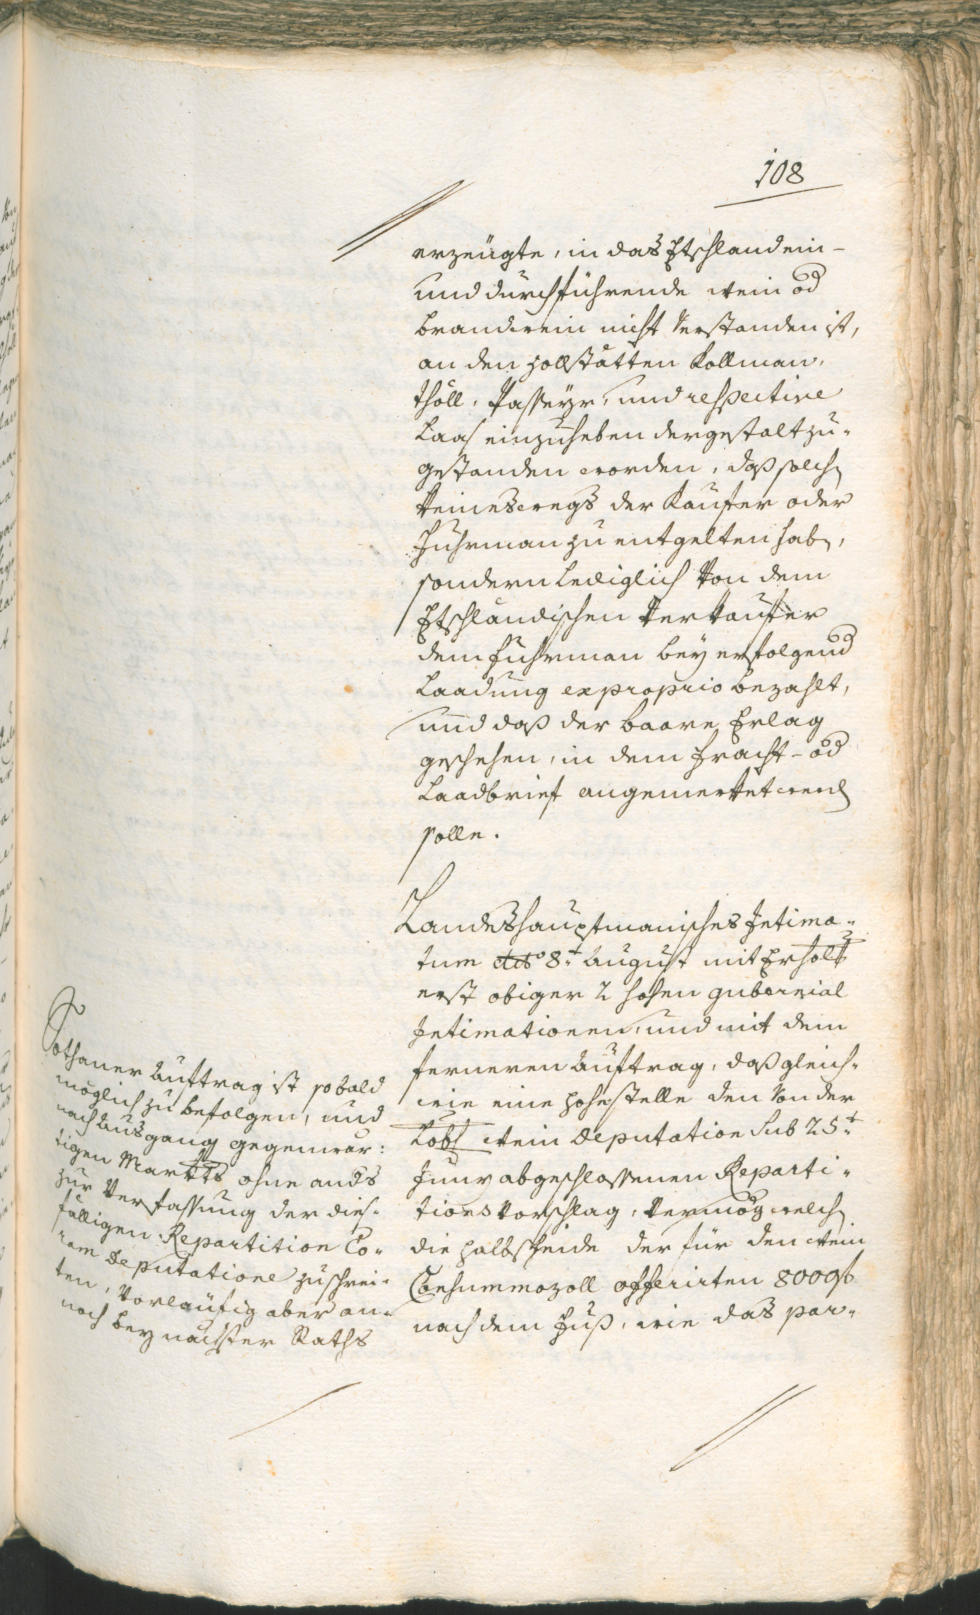 108
erzeügte, in das Etschland ein-
und durchführende wein od
brandwein nicht verstanden ist,
an den zollstätten Kollman,
Thöll, Passeyr, und respective
Laas einzuheben dergestalt zu-
gestanden worden, daß solch
keineswegs der Kaufer oder
Fuhrman zu entgelten hab,
sondern lediglich von dem
Etschländischen Verkaufer
dem fuhrman bey erfolgend
Laadung ex proprio bezahlt,
und daß der baare Erlag
geschehen, in dem fracht- od
Laadbrief angemerket werd
solle.
Landeshauptmanisches Intima-
tum dto 8t August mit Erholg
erst obiger 2 hohen gubernial
Intimationen, und mit dem
ferneren Auftrag, daß gleich-
wie eine hohe stelle den von der
Löbl wein Deputation sub 25t
Juny abgeschlossenen Reparti-
tions Vorschlag, vermög welch
die halbscheide der für den wein
Consummozoll offerirten 8000f
nach dem Fuß, wie das par-
Sothaner Auftrag ist sobald
möglich zu befolgen, und
nach Ausgang gegenwär-
tigen Markts ohne anders
zur Verfassung der dies-
fälligen Repartition Co-
ram Deputatione zu schrei-
ten, Vorläufig aber an-
noch bey nächster Raths